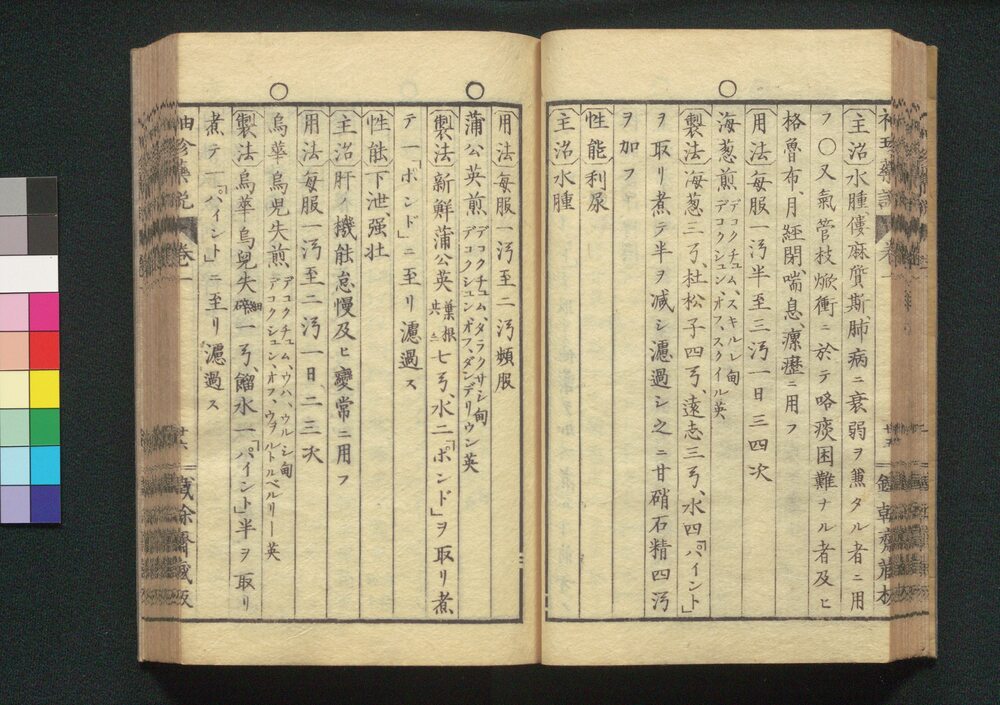 主治水腫僂麻質斯肺病ニ衰弱ヲ兼タル者ニ用
フ〇又氣管枝焮衝ニ於テ咯痰困難ナル者及ヒ
格魯布、月經閉、喘息、瘰癧ニ用フ
用法每服一沔半至三沔一日三四次
海葱煎 デコクチュム、スキルレ甸 デコクシュン、オフ、スクイル英
製法海葱三弓、杜松子四弓、遠志三弓、水四「パイント」
ヲ取リ煮テ半ヲ減シ濾過シ之ニ甘硝石精四沔
ヲ加フ
性能利尿
主治水腫
用法每服一沔至二沔頻服
蒲公英煎 デコクチュム、タラクサシ甸 デコクシュン、オフ、ダンデリウン英
製法新鮮蒲公英 葉根共ニ 七弓、水二「ポンド」ヲ取リ煮
テ一「ポンド」ニ至リ濾過ス
性能下泄、强壯
主治肝ノ機能怠慢及ヒ變常ニ用フ
用法每服一沔至二沔一日二三次
烏華烏兒失煎 デコクチュム、ウハ、ウルシ甸 デコクシュン、オフ、ウヲルトルベルリー英
製法烏華烏兒失 細碎 一弓、餾水一「パイント」半ヲ取リ
煮テ一「パイント」ニ至リ濾過ス
袖珍藥說 卷一 廿六